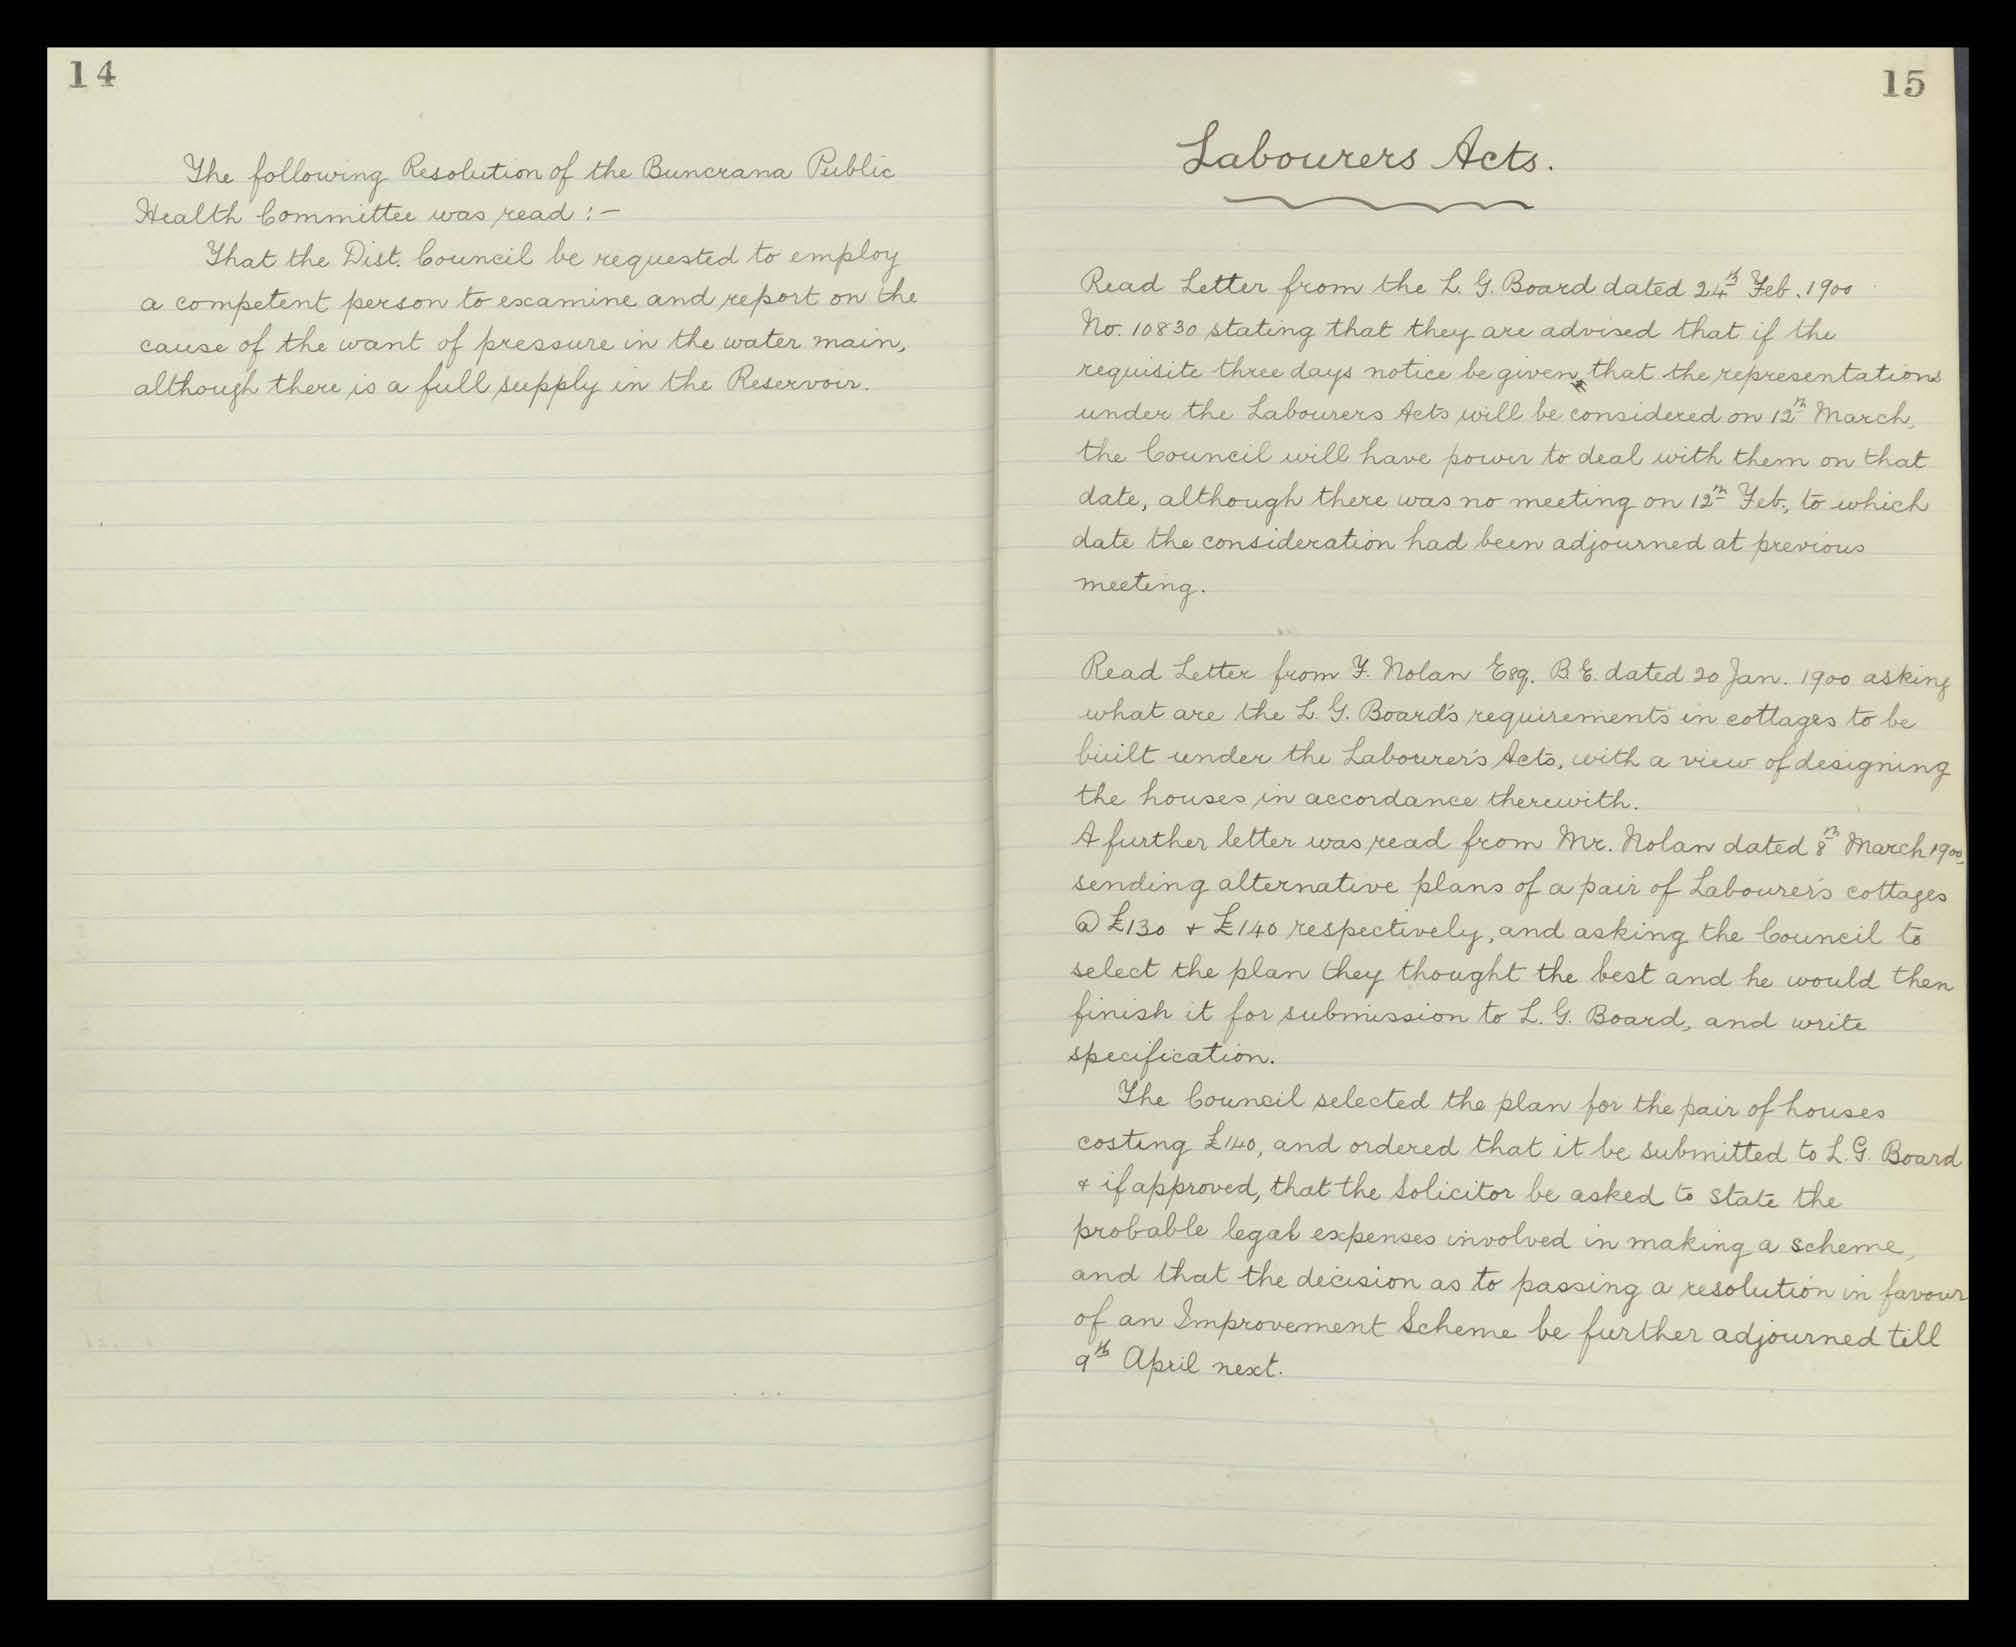 14
The following Resolution of the Buncrana Public
Health Committee was read :—
That the Dist. Council be requested to employ
a competent person to examine and report on the
cause of the want of pressure in the water main,
although there is a full supply in the Reservoir.
15
Labourers Acts.
Read Letter from the L. G. Board dated 24th Feb. 1900
No. 10830 stating that they are advised that if the
requisite three days notice be given, that the representations
under the Labourers Acts will be considered on 12th March,
the Council will have power to deal with them on that
date, although there was no meeting on 12th Feb., to which
date the consideration had been adjourned at previous
meeting.
Read Letter from F. Nolan Esq. B. E. dated 20 Jan. 1900 asking
what are the L. G. Board's requirements in cottages to be
built under the Labourer's Acts, with a view of designing
the houses in accordance therewith.
A further letter was read from Mr. Nolan dated 8th March 1900,
sending alternative plans of a pair of Labourer's cottages
@ £130 + £140 respectively, and asking the Council to
select the plan they thought the best and he would then
finish it for submission to L. G. Board, and write
specification.
The Council selected the plan for the pair of houses
costing £140, and ordered that it be submitted to L. G. Board
+ if approved, that the Solicitor be asked to state the
probable legal expenses involved in making a scheme,
and that the decision as to passing a resolution in favour
of an Improvement Scheme be further adjourned till
9th April next.